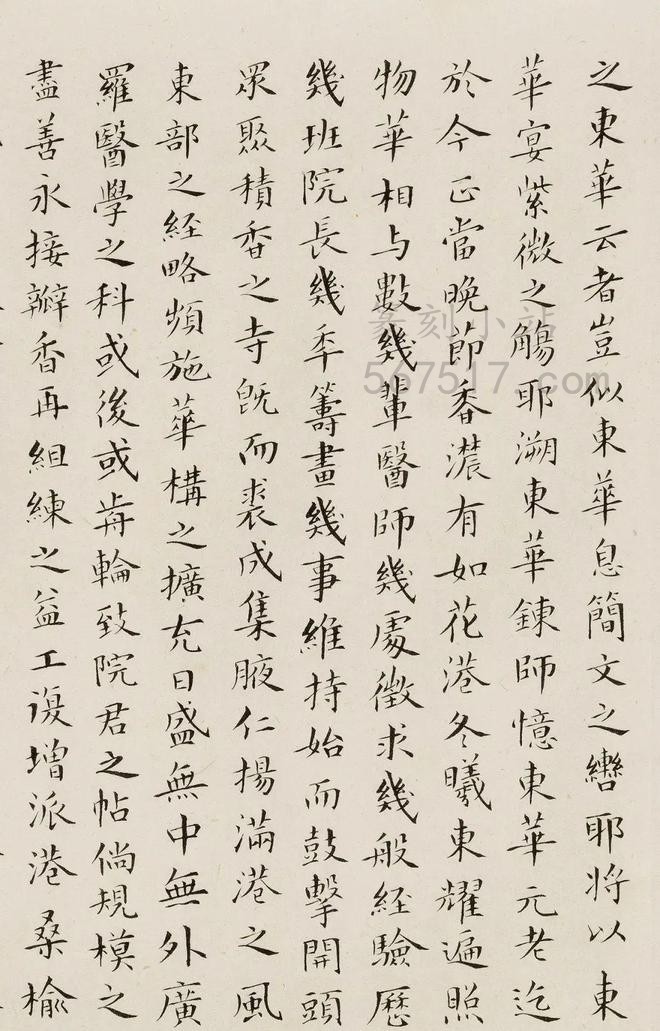 之東華云者豈似東華息簡文之轡耶將以東
華宴紫微之觴耶溯東華鍊師憶東華元老迄
於今正當晚節香濃有如花港冬曦東耀遍照
物華相与數幾輩醫師幾處徵求幾般経驗歷
幾班院長幾年籌畫幾事維持始而鼓擊開頭
眾聚積香之寺既而裘成集腋仁揚滿港之風
東部之経略頻施華構之擴充日盛無中無外廣
羅醫學之科或後或前輪致院君之帖倘規模之
盡善永接瓣香再組練之益工復增派港桑榆
篆刻小站
567517.com